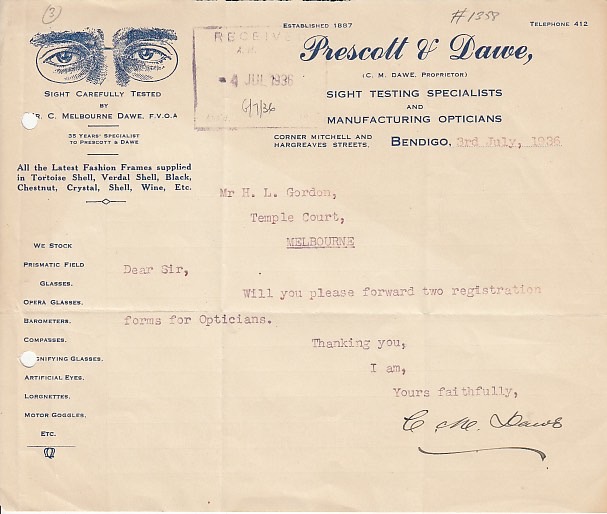 3
#1358
Established 1887
Telephone 412
Prescott & Dawe,
(C. M. Dawe, Proprietor)
Sight Testing Specialists
and
Manufacturing Opticians
Corner Mitchell and
Hargreaves Streets,
Bendigo, 3rd July, 1936
RECEIVE
4 JUL 1936
6/7/36
Sight Carefully Tested
by
R. C. Melbourne Dawe, F.V.O.A
35 Years' Specialist
to Prescott & Dawe
All the Latest Fashion Frames supplied
in Tortoise Shell, Verdal Shell, Black,
Chestnut, Crystal, Shell, Wine, Etc.
We Stock
Prismatic Field
Glasses.
Opera Glasses.
Barometers.
Compasses.
gnifying Glasses.
Artificial Eyes.
Lorgnettes.
Motor Goggles.
Etc.
Mr H. L. Gordon,
Temple Court,
MELBOURNE
Dear Sir,
Will you please forward two registration
forms for Opticians.
Thanking you,
I am,
Yours faithfully,
C. M. Dawe